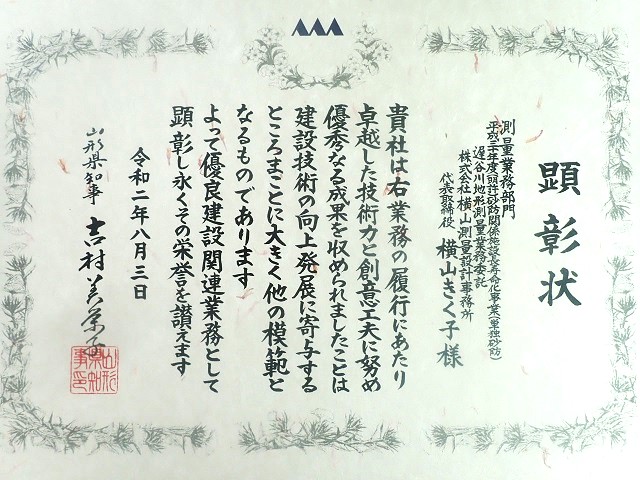 顕彰状
測量業務部門
平成三十年度(明許)砂防関係施設長寿命化事業(単独砂防)
逕谷川地形測量業務委託
株式会社横山測量設計事務所
代表取締役 横山きく子様
貴社は右業務の履行にあたり
卓越した技術力と創意工夫に努め
優秀なる成果を収められましたことは
建設技術の向上発展に寄与する
ところまことに大きく他の模範と
なるものであります
よって優良建設関連業務として
顕彰し永くその栄誉を讃えます
令和二年八月三日
山形県知事 吉村美栄子
山形県知事印